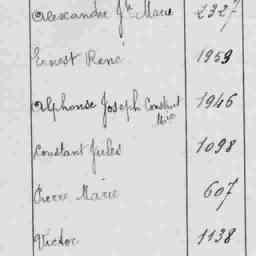 Alexandre Jh Marie 2327
Ernest René 1959
Alphonse Joseph Constant 1946
Mie
Constant Jules 1098
Pierre Marie 607
Victor 1138